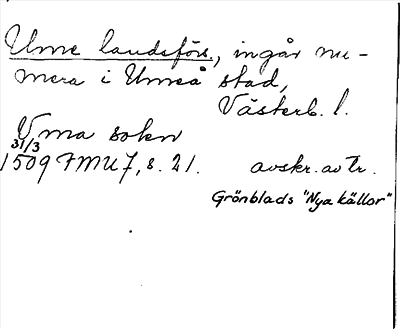 Ume landsförs., ingår nu-
mera i Umeå stad,
Västerb. l.
Vma sokn
31/3
1509 FMU 7, s. 21. avskr. av tr.
Grönblads "Nya källor"